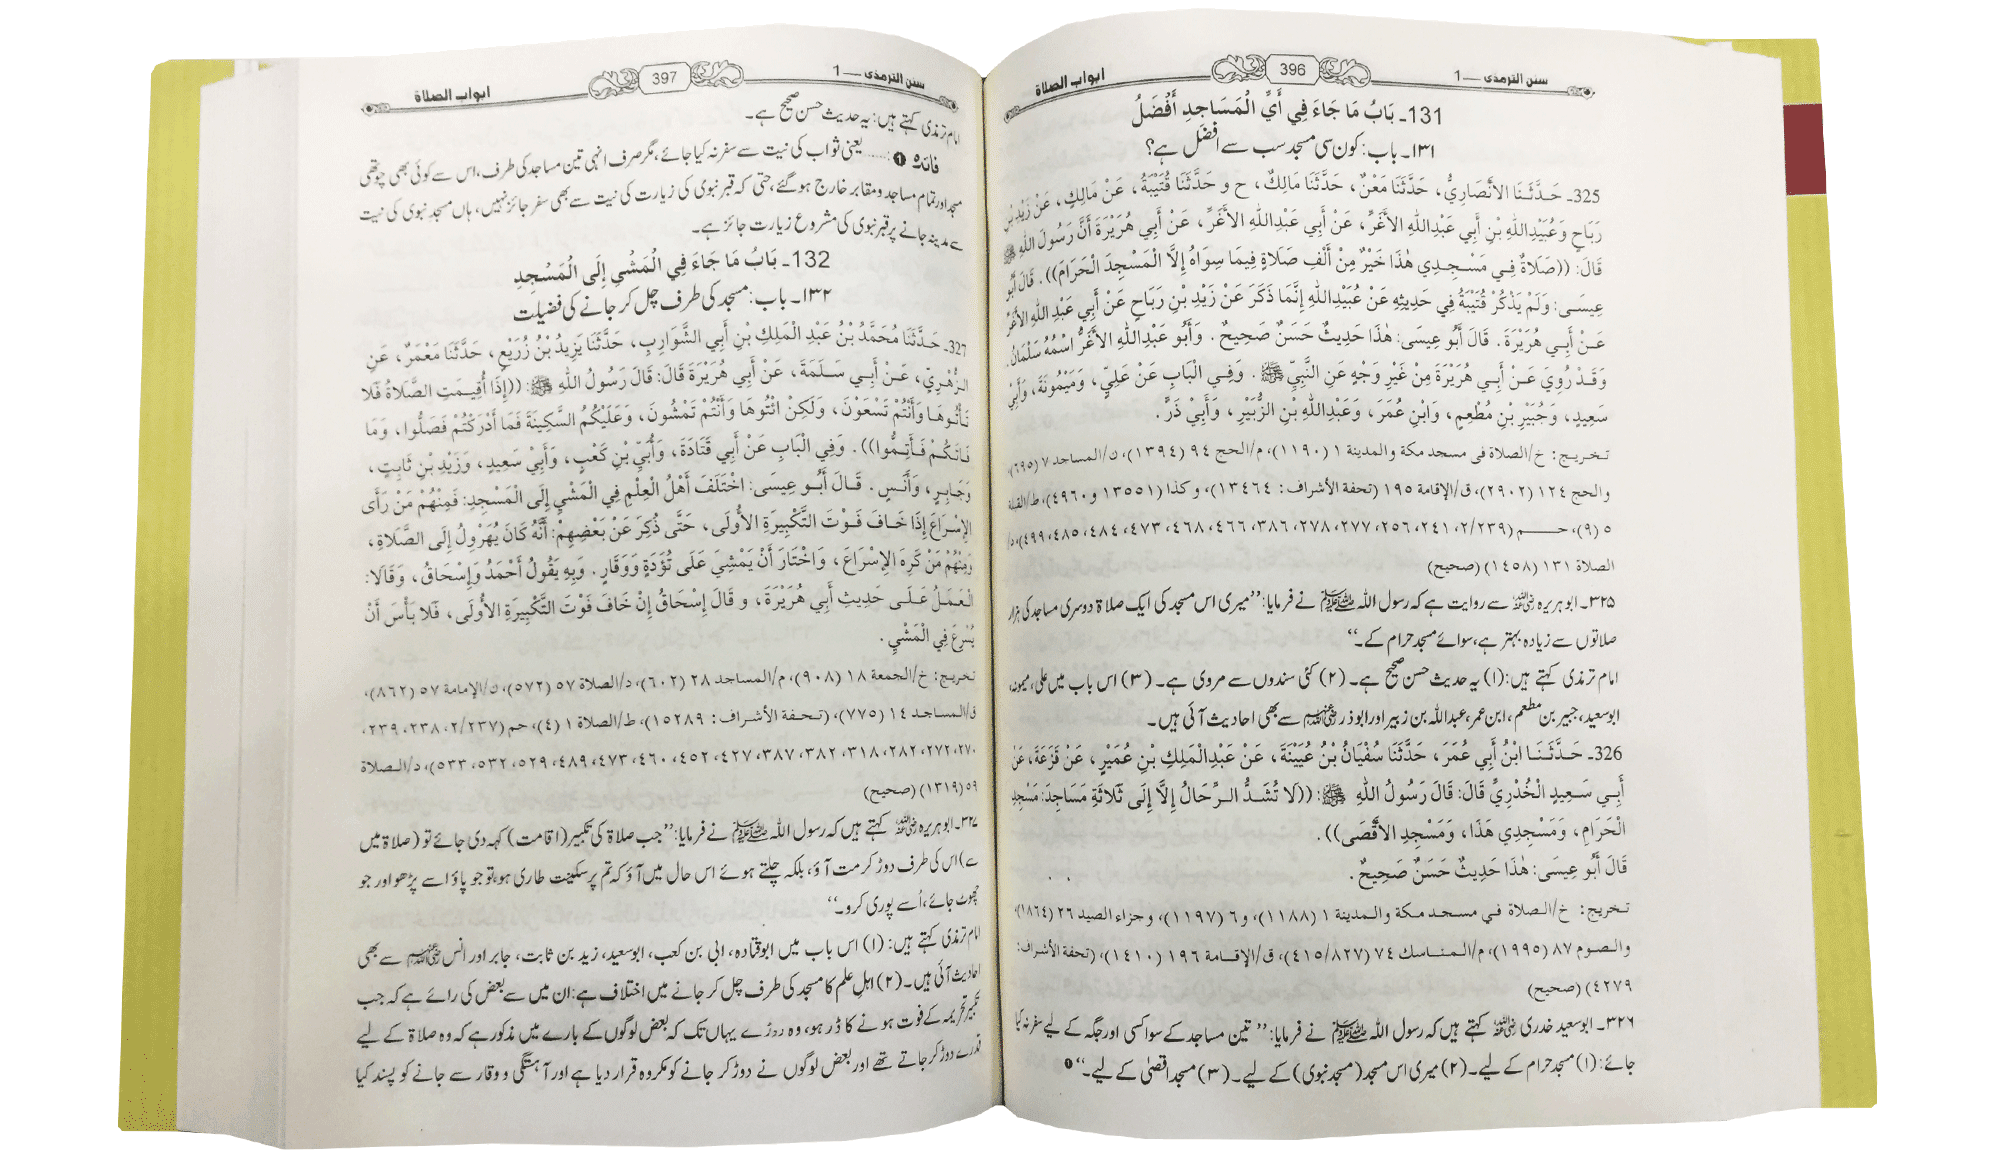 سنن الترمذى — 1
396
ابواب الصلاة
131۔ بَابُ مَا جَاءَ فِي أَيِّ الْمَسَاجِدِ أَفْضَلُ
۱۳۱۔ باب: کون سی مسجد سب سے افضل ہے؟
325۔ حَدَّثَنَا الأَنْصَارِيُّ، حَدَّثَنَا مَعْنٌ، حَدَّثَنَا مَالِكٌ، ح و حَدَّثَنَا قُتَيْبَةُ، عَنْ مَالِكٍ، عَنْ زَيْدِ بْنِ
رَبَاحٍ وَعُبَيْدِاللهِ بْنِ أَبِي عَبْدِاللهِ الأَغَرِّ، عَنْ أَبِي عَبْدِاللهِ الأَغَرِّ، عَنْ أَبِي هُرَيْرَةَ أَنَّ رَسُولَ اللهِ ﷺ
قَالَ: ((صَلَاةٌ فِي مَسْجِدِي هَذَا خَيْرٌ مِنْ أَلْفِ صَلَاةٍ فِيمَا سِوَاهُ إِلَّا الْمَسْجِدَ الْحَرَامَ)). قَالَ أَبُو
عِيسَى: وَلَمْ يَذْكُرْ قُتَيْبَةُ فِي حَدِيثِهِ عَنْ عُبَيْدِاللهِ إِنَّمَا ذَكَرَ عَنْ زَيْدِ بْنِ رَبَاحٍ عَنْ أَبِي عَبْدِ اللهِ الأَغَرِّ
عَنْ أَبِي هُرَيْرَةَ. قَالَ أَبُو عِيسَى: هَذَا حَدِيثٌ حَسَنٌ صَحِيحٌ. وَأَبُو عَبْدِاللهِ الأَغَرُّ اسْمُهُ سَلْمَانُ.
وَقَدْ رُوِيَ عَنْ أَبِي هُرَيْرَةَ مِنْ غَيْرِ وَجْهٍ عَنِ النَّبِيِّ ﷺ. وَفِي الْبَابِ عَنْ عَلِيٍّ، وَمَيْمُونَةَ، وَأَبِي
سَعِيدٍ، وَجُبَيْرِ بْنِ مُطْعِمٍ، وَابْنِ عُمَرَ، وَعَبْدِاللهِ بْنِ الزُّبَيْرِ، وَأَبِي ذَرٍّ.
تخريج: خ/الصلاة فى مسجد مكة والمدينة ۱ (۱۱۹۰)، م/الحج ۹٤ (۱۳۹٤)، ن/المساجد ۷ (٦۹٥)،
والحج ۱۲٤ (۲۹۰۲)، ق/الإقامة ۱۹٥ (تحفة الأشراف: ۱۳٤٦٤)، وكذا (۱۳٥٥۱ و ٤۹٦۰)، ط/القبلة
٥ (۹)، حم (۲/۲۳۹، ۲٤۱، ۲٥٦، ۲۷۷، ۲۷۸، ۳۸٦، ٤٦٦، ٤٦۸، ٤۷۳، ٤۸٤، ٤۸٥، ٤۹۹)، د/
الصلاة ۱۳۱ (۱٤٥۸) (صحيح)
۳۲۵۔ ابوہریرہ رضی اللہ عنہ سے روایت ہے کہ رسول اللہ ﷺ نے فرمایا: ”میری اس مسجد کی ایک صلاۃ دوسری مساجد کی ہزار
صلاتوں سے زیادہ بہتر ہے، سوائے مسجد حرام کے۔“
امام ترمذی کہتے ہیں: (۱) یہ حدیث حسن صحیح ہے۔ (۲) کئی سندوں سے مروی ہے۔ (۳) اس باب میں علی، میمونہ،
ابوسعید، جبیر بن مطعم، ابن عمر، عبداللہ بن زبیر اور ابوذر رضی اللہ عنہم سے بھی احادیث آئی ہیں۔
326۔ حَدَّثَنَا ابْنُ أَبِي عُمَرَ، حَدَّثَنَا سُفْيَانُ بْنُ عُيَيْنَةَ، عَنْ عَبْدِالْمَلِكِ بْنِ عُمَيْرٍ، عَنْ قَزَعَةَ، عَنْ
أَبِي سَعِيدٍ الْخُدْرِيِّ قَالَ: قَالَ رَسُولُ اللهِ ﷺ: ((لَا تُشَدُّ الرِّحَالُ إِلَّا إِلَى ثَلَاثَةِ مَسَاجِدَ: مَسْجِدِ
الْحَرَامِ، وَمَسْجِدِي هَذَا، وَمَسْجِدِ الأَقْصَى)).
قَالَ أَبُو عِيسَى: هَذَا حَدِيثٌ حَسَنٌ صَحِيحٌ.
تخريج: خ/الصلاة في مسجد مكة والمدينة ۱ (۱۱۸۸)، و ٦ (۱۱۹۷)، وجزاء الصيد ۲٦ (۱۸٦٤)،
والصوم ۸۷ (۱۹۹٥)، م/المناسك ۷٤ (٤۱٥/۸۲۷)، ق/الإقامة ۱۹٦ (۱٤۱۰)، (تحفة الأشراف:
٤۲۷۹) (صحيح)
۳۲۶۔ ابوسعید خدری رضی اللہ عنہ کہتے ہیں کہ رسول اللہ ﷺ نے فرمایا: ”تین مساجد کے سوا کسی اور جگہ کے لیے سفر نہ کیا
جائے: (۱) مسجد حرام کے لیے۔ (۲) میری اس مسجد (مسجد نبوی) کے لیے۔ (۳) مسجد اقصیٰ کے لیے۔“ ❶
سنن الترمذى — 1
397
ابواب الصلاة
امام ترمذی کہتے ہیں: یہ حدیث حسن صحیح ہے۔
فائدہ ❶: ..... یعنی ثواب کی نیت سے سفر نہ کیا جائے، مگر صرف انہی تین مساجد کی طرف، اس سے کوئی بھی چوتھی
مسجد اور تمام مساجد و مقابر خارج ہو گئے، حتی کہ قبر نبوی کی زیارت کی نیت سے بھی سفر جائز نہیں، ہاں مسجد نبوی کی نیت
سے مدینہ جانے پر قبر نبوی کی مشروع زیارت جائز ہے۔
132۔ بَابُ مَا جَاءَ فِي الْمَشْيِ إِلَى الْمَسْجِدِ
۱۳۲۔ باب: مسجد کی طرف چل کر جانے کی فضیلت
327۔ حَدَّثَنَا مُحَمَّدُ بْنُ عَبْدِ الْمَلِكِ بْنِ أَبِي الشَّوَارِبِ، حَدَّثَنَا يَزِيدُ بْنُ زُرَيْعٍ، حَدَّثَنَا مَعْمَرٌ، عَنِ
الزُّهْرِيِّ، عَنْ أَبِي سَلَمَةَ، عَنْ أَبِي هُرَيْرَةَ قَالَ: قَالَ رَسُولُ اللهِ ﷺ: ((إِذَا أُقِيمَتِ الصَّلَاةُ فَلَا
تَأْتُوهَا وَأَنْتُمْ تَسْعَوْنَ، وَلَكِنْ ائْتُوهَا وَأَنْتُمْ تَمْشُونَ، وَعَلَيْكُمُ السَّكِينَةَ فَمَا أَدْرَكْتُمْ فَصَلُّوا، وَمَا
فَاتَكُمْ فَأَتِمُّوا)). وَفِي الْبَابِ عَنْ أَبِي قَتَادَةَ، وَأُبَيِّ بْنِ كَعْبٍ، وَأَبِي سَعِيدٍ، وَزَيْدِ بْنِ ثَابِتٍ،
وَجَابِرٍ، وَأَنَسٍ. قَالَ أَبُو عِيسَى: اخْتَلَفَ أَهْلُ الْعِلْمِ فِي الْمَشْيِ إِلَى الْمَسْجِدِ: فَمِنْهُمْ مَنْ رَأَى
الإِسْرَاعَ إِذَا خَافَ فَوْتَ التَّكْبِيرَةِ الأُولَى، حَتَّى ذُكِرَ عَنْ بَعْضِهِمْ: أَنَّهُ كَانَ يُهَرْوِلُ إِلَى الصَّلَاةِ،
وَمِنْهُمْ مَنْ كَرِهَ الإِسْرَاعَ، وَاخْتَارَ أَنْ يَمْشِيَ عَلَى تُؤَدَةٍ وَوَقَارٍ. وَبِهِ يَقُولُ أَحْمَدُ وَإِسْحَاقُ، وَقَالَا:
الْعَمَلُ عَلَى حَدِيثِ أَبِي هُرَيْرَةَ، و قَالَ إِسْحَاقُ إِنْ خَافَ فَوْتَ التَّكْبِيرَةِ الأُولَى، فَلَا بَأْسَ أَنْ
يُسْرِعَ فِي الْمَشْيِ.
تخريج: خ/الجمعة ۱۸ (۹۰۸)، م/المساجد ۲۸ (٦۰۲)، د/الصلاة ٥۷ (٥۷۲)، ن/الإمامة ٥۷ (۸٦۲)،
ق/المساجد ۱٤ (۷۷٥)، (تحفة الأشراف: ۱٥۲۸۹)، ط/الصلاة ۱ (٤)، حم (۲/۲۳۷، ۲۳۸، ۲۳۹،
۲۷۰، ۲۷۲، ۲۸۲، ۳۱۸، ۳۸۲، ۳۸۷، ٤۲۷، ٤٥۲، ٤٦۰، ٤۷۳، ٤۸۹، ٥۲۹، ٥۳۲، ٥۳۳)، د/الصلاة
٥۹ (۱۳۱۹) (صحيح)
۳۲۷۔ ابوہریرہ رضی اللہ عنہ کہتے ہیں کہ رسول اللہ ﷺ نے فرمایا: ”جب صلاۃ کی تکبیر (اقامت) کہہ دی جائے تو (صلاۃ میں
سے) اس کی طرف دوڑ کر مت آؤ، بلکہ چلتے ہوئے اس حال میں آؤ کہ تم پر سکینت طاری ہو، تو جو پاؤ اسے پڑھو اور جو
چھوٹ جائے، اُسے پوری کرو۔“
امام ترمذی کہتے ہیں: (۱) اس باب میں ابوقتادہ، ابی بن کعب، ابوسعید، زید بن ثابت، جابر اور انس رضی اللہ عنہم سے بھی
احادیث آئی ہیں۔ (۲) اہل علم کا مسجد کی طرف چل کر جانے میں اختلاف ہے: ان میں سے بعض کی رائے ہے کہ جب
تکبیر تحریمہ کے فوت ہونے کا ڈر ہو، وہ دوڑے یہاں تک کہ بعض لوگوں کے بارے میں مذکور ہے کہ وہ صلاۃ کے لیے
قدرے دوڑ کر جاتے تھے اور بعض لوگوں نے دوڑ کر جانے کو مکروہ قرار دیا ہے اور آہستگی و وقار سے جانے کو پسند کیا